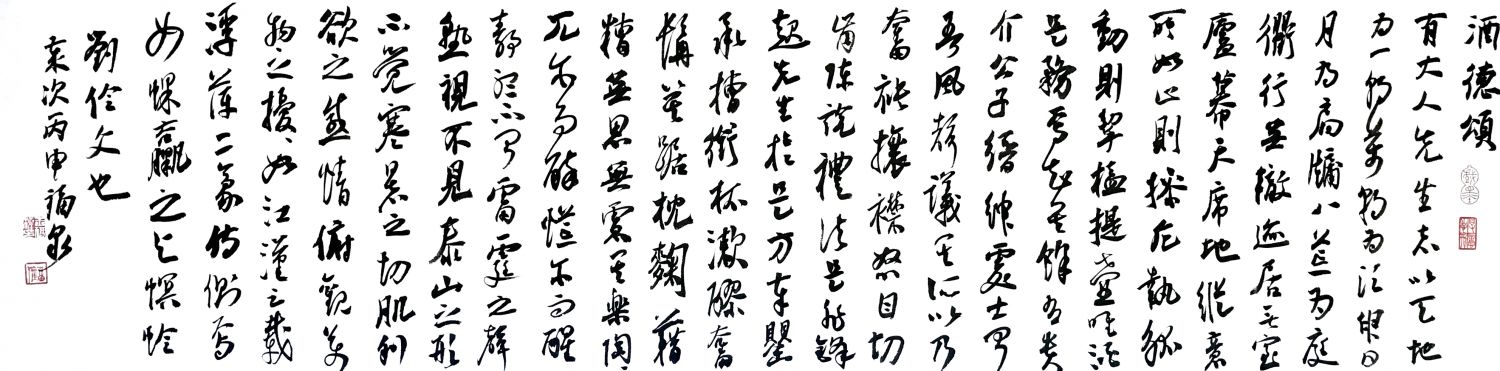 酒德頌
有大人先生志以天地
為一朝萬期為須臾日
月為扃牖八荒為庭
衢行無轍迹居無室
廬幕天席地縱意
所如止則操卮執觚
動則挈榼提壺唯酒
是務焉知其餘有貴
介公子縉紳處士聞
吾風聲議其所以乃
奮袂攘襟怒目切
齒陳說禮法是非鋒
起先生於是方奉罌
承槽銜杯漱醪奮
髯箕踞枕麴藉
糟無思無慮其樂陶々
兀尔而醉恍尔而醒
靜聽不聞雷霆之聲
熟視不見泰山之形
不覺寒暑之切肌利
欲之感情俯觀萬
物之擾々如江漢之載
浮萍二豪侍側焉
如蜾蠃之與螟蛉
劉伶文也
歲次丙申福泉